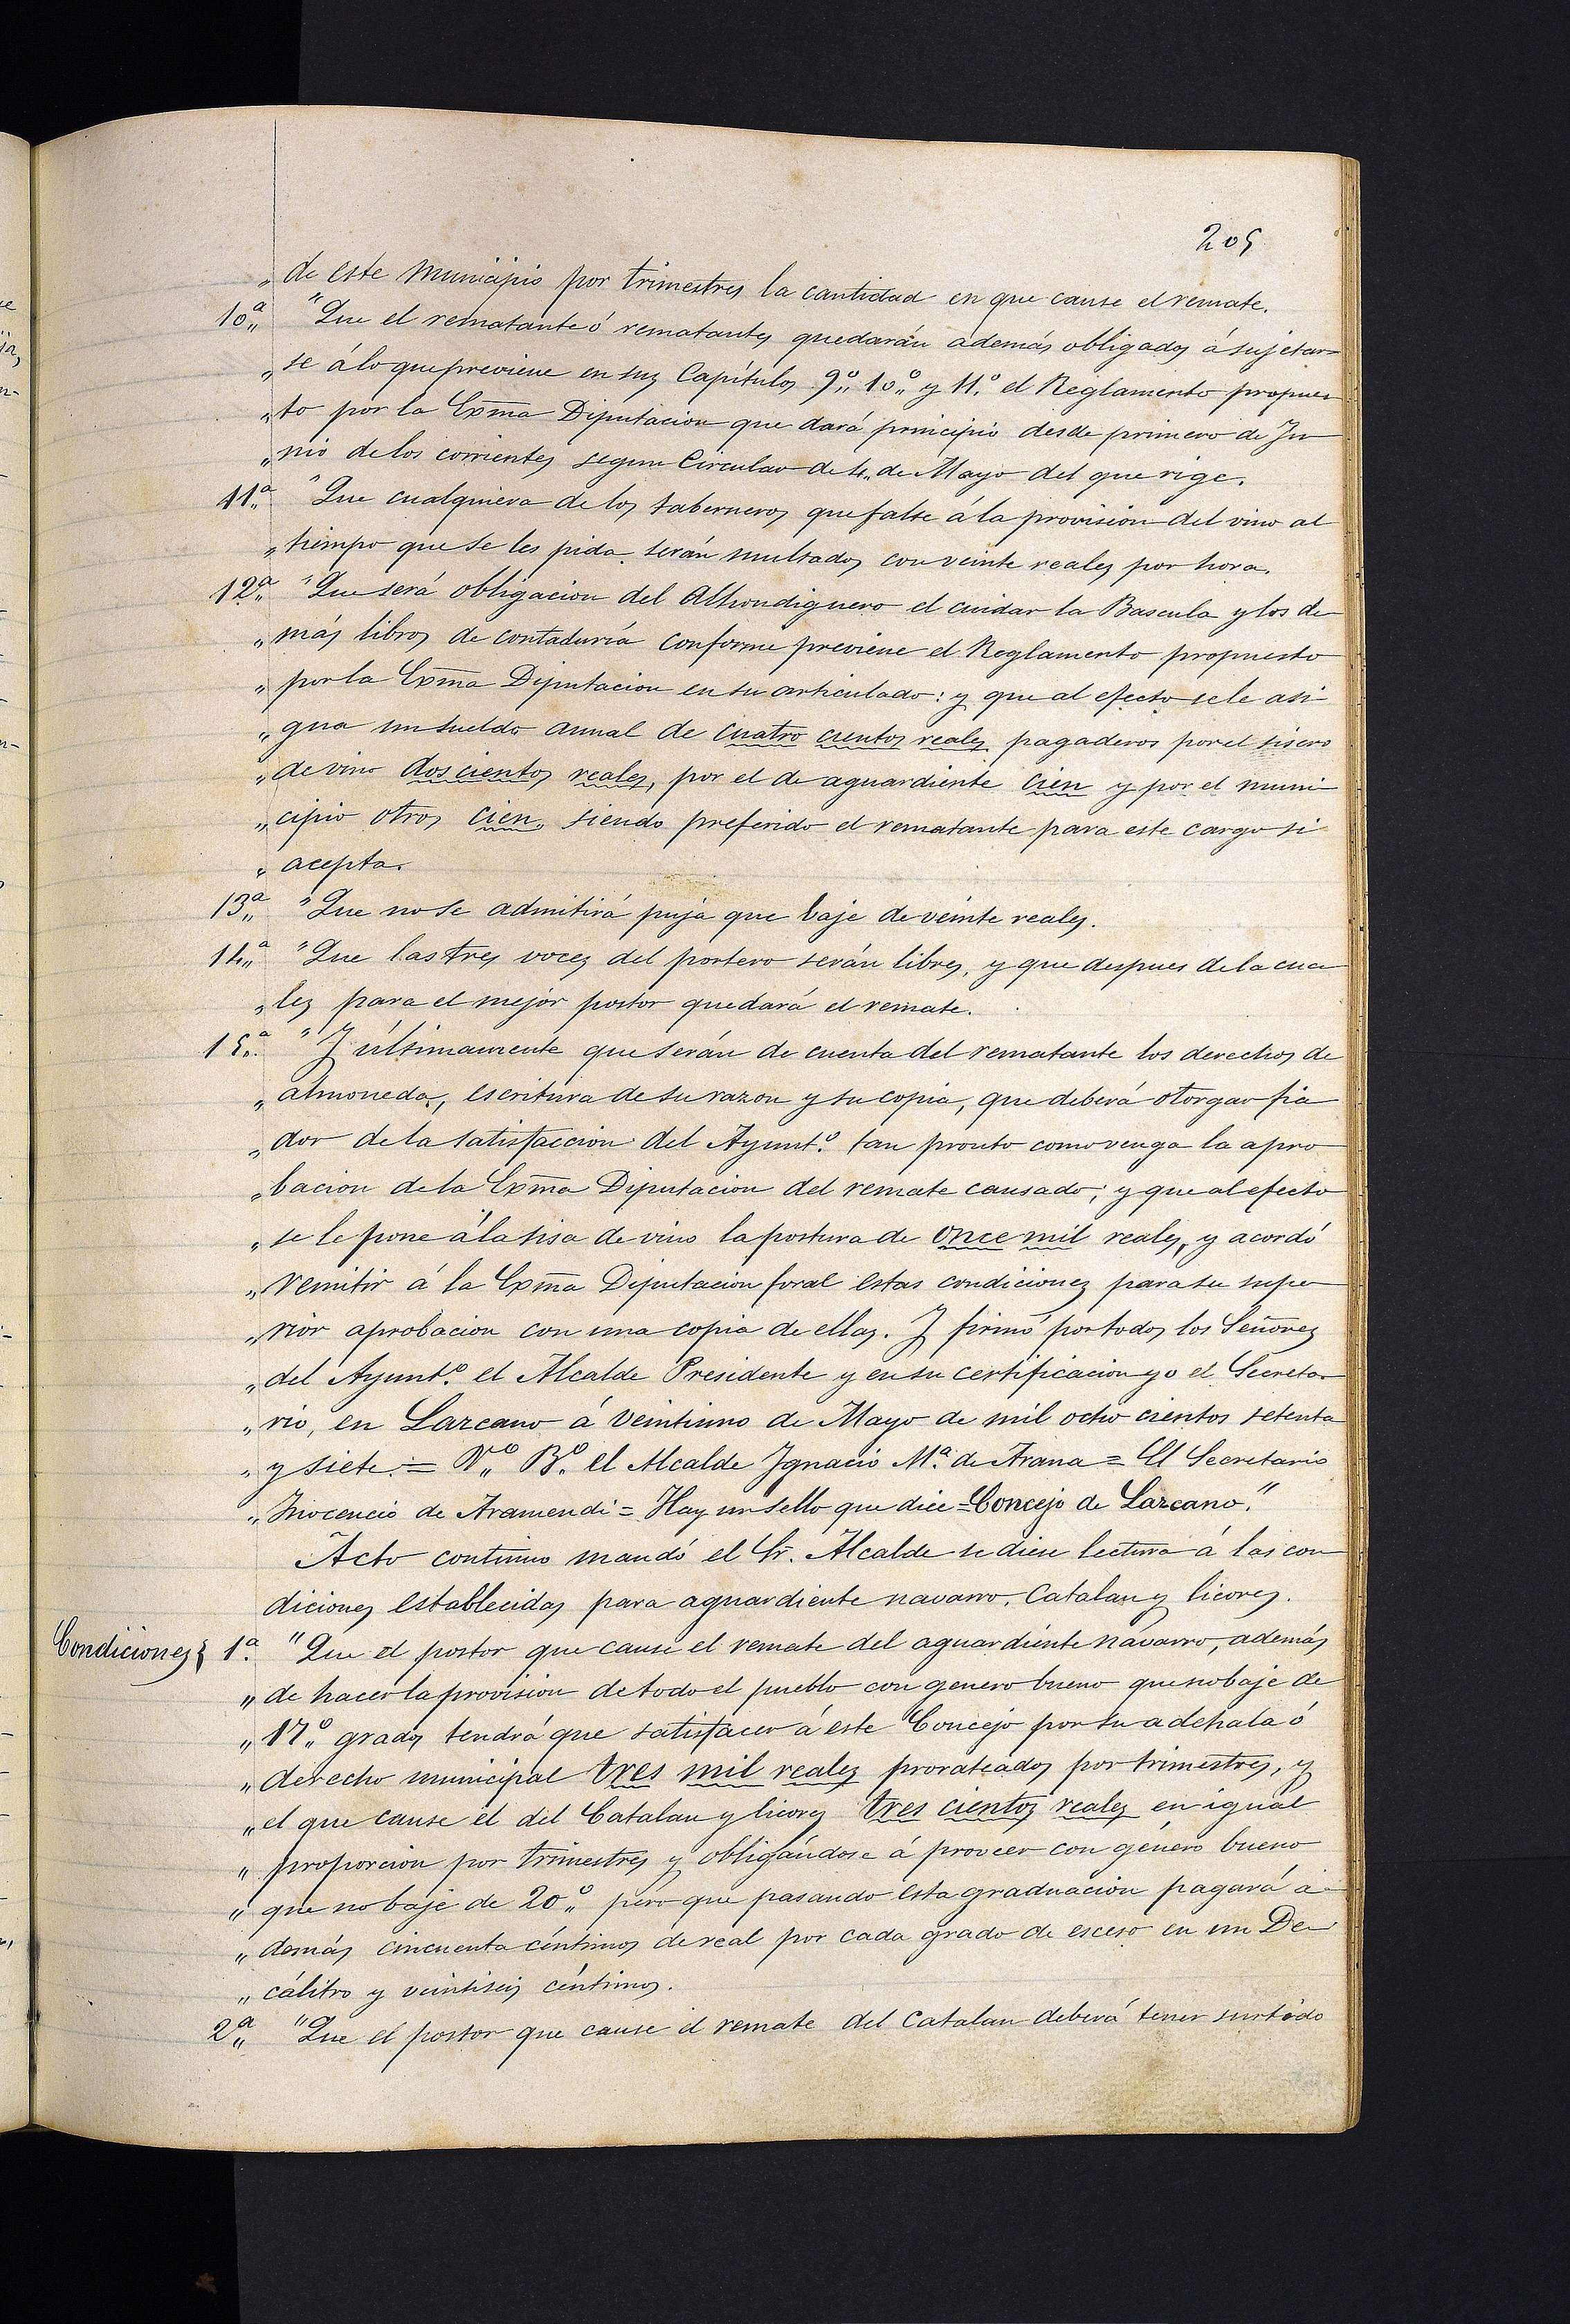 205
„ de este Municipio por trimestres la cantidad en que cause el remate.
10.ª "Que el rematante ó rematantes quedarán además obligados á sujetar-
„ se á lo que previene en sus Capítulos 9.º 10.º y 11.º el Reglamento propues-
„ to por la Exma Diputacion que dará principio desde primero de Ju-
„ nio de los corrientes segun Circular de 4„ de Mayo del que rige.
11.ª "Que cualquiera de los taberneros que falte á la provision del vino al
„ tiempo que se les pida serán multados con veinte reales por hora.
12.ª "Que será obligacion del Alhondiguero el cuidar la Bascula y los de-
„ más libros de contaduría conforme previene el Reglamento propuesto
„ por la Exma Diputacion en su articulado: y que al efecto se le asi-
„ gna un sueldo annal de cuatro cientos reales pagaderos por el sisero
„ de vino doscientos reales, por el de aguardiente cien y por el muni-
„ cipio otros cien„ siendo preferido el rematante para este cargo si
„ acepta.
13.ª "Que no se admitirá puja que baje de veinte reales.
14.ª "Que las tres voces del portero serán libres, y que despues de la cua-
„ les para el mejor postor quedará el remate.
15.ª "Y últimamente que serán de cuenta del rematante los derechos de
„ almoneda, escritura de su razon y su copia, que deberá otorgar fia-
„ dor de la satisfaccion del Ayunt.º tan pronto como venga la apro-
„ bacion de la Exma Diputacion del remate causado; y que al efecto
„ se le pone á la sisa de vino la postura de once mil reales, y acordó
„ remitir á la Exma Diputacion foral estas condiciones para su supe-
„ rior aprobacion con una copia de ellas. Y firmó por todos los Señores
„ del Ayunt.º el Alcalde Presidente y en su certificacion yo el Secreta-
„ rio, en Lazcano á veintiuno de Mayo de mil ocho cientos setenta
„ y siete. = V.º B.º el Alcalde Ygnacio M.ª de Arana = El Secretario
„ Ynocencio de Aramendi = Hay un sello que dice = Concejo de Lazcano."
Acto continuo mandó el Sr. Alcalde se diese lectura á las con-
diciones establecidas para aguardiente navarro, Catalan y licores.
Condiciones 1.ª "Que el postor que cause el remate del aguardiente navarro, además
„ de hacer la provision de todo el pueblo con genero bueno que no baje de
„ 17.º grados tendrá que satisfacer á este Concejo por su adehala ó
„ derecho municipal tres mil reales prorateados por trimestres, y
„ el que cause el del Catalan y licores tres cientos reales en igual
„ proporcion por trimestres y obligándose á proveer con género bueno
„ que no baje de 20.º pero que pasando esta graduacion pagará a-
„ demás cincuenta céntimos de real por cada grado de esceso en un De-
„ cálitro y veintiseis céntimos.
2.ª "Que el postor que cause el remate del Catalan deberá tener surtido